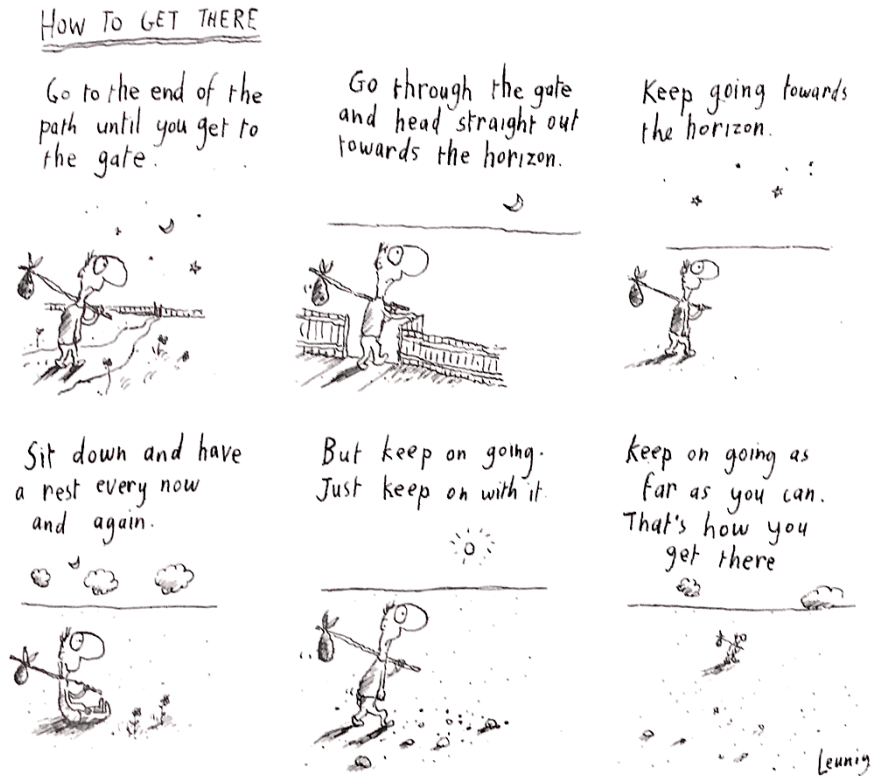 HOW TO GET THERE
Go to the end of the
path until you get to
the gate.
Go through the gate
and head straight out
towards the horizon.
Keep going towards
the horizon.
Sit down and have
a rest every now
and again.
But keep on going.
Just keep on with it
Keep on going as
far as you can.
That's how you
get there
Leunig